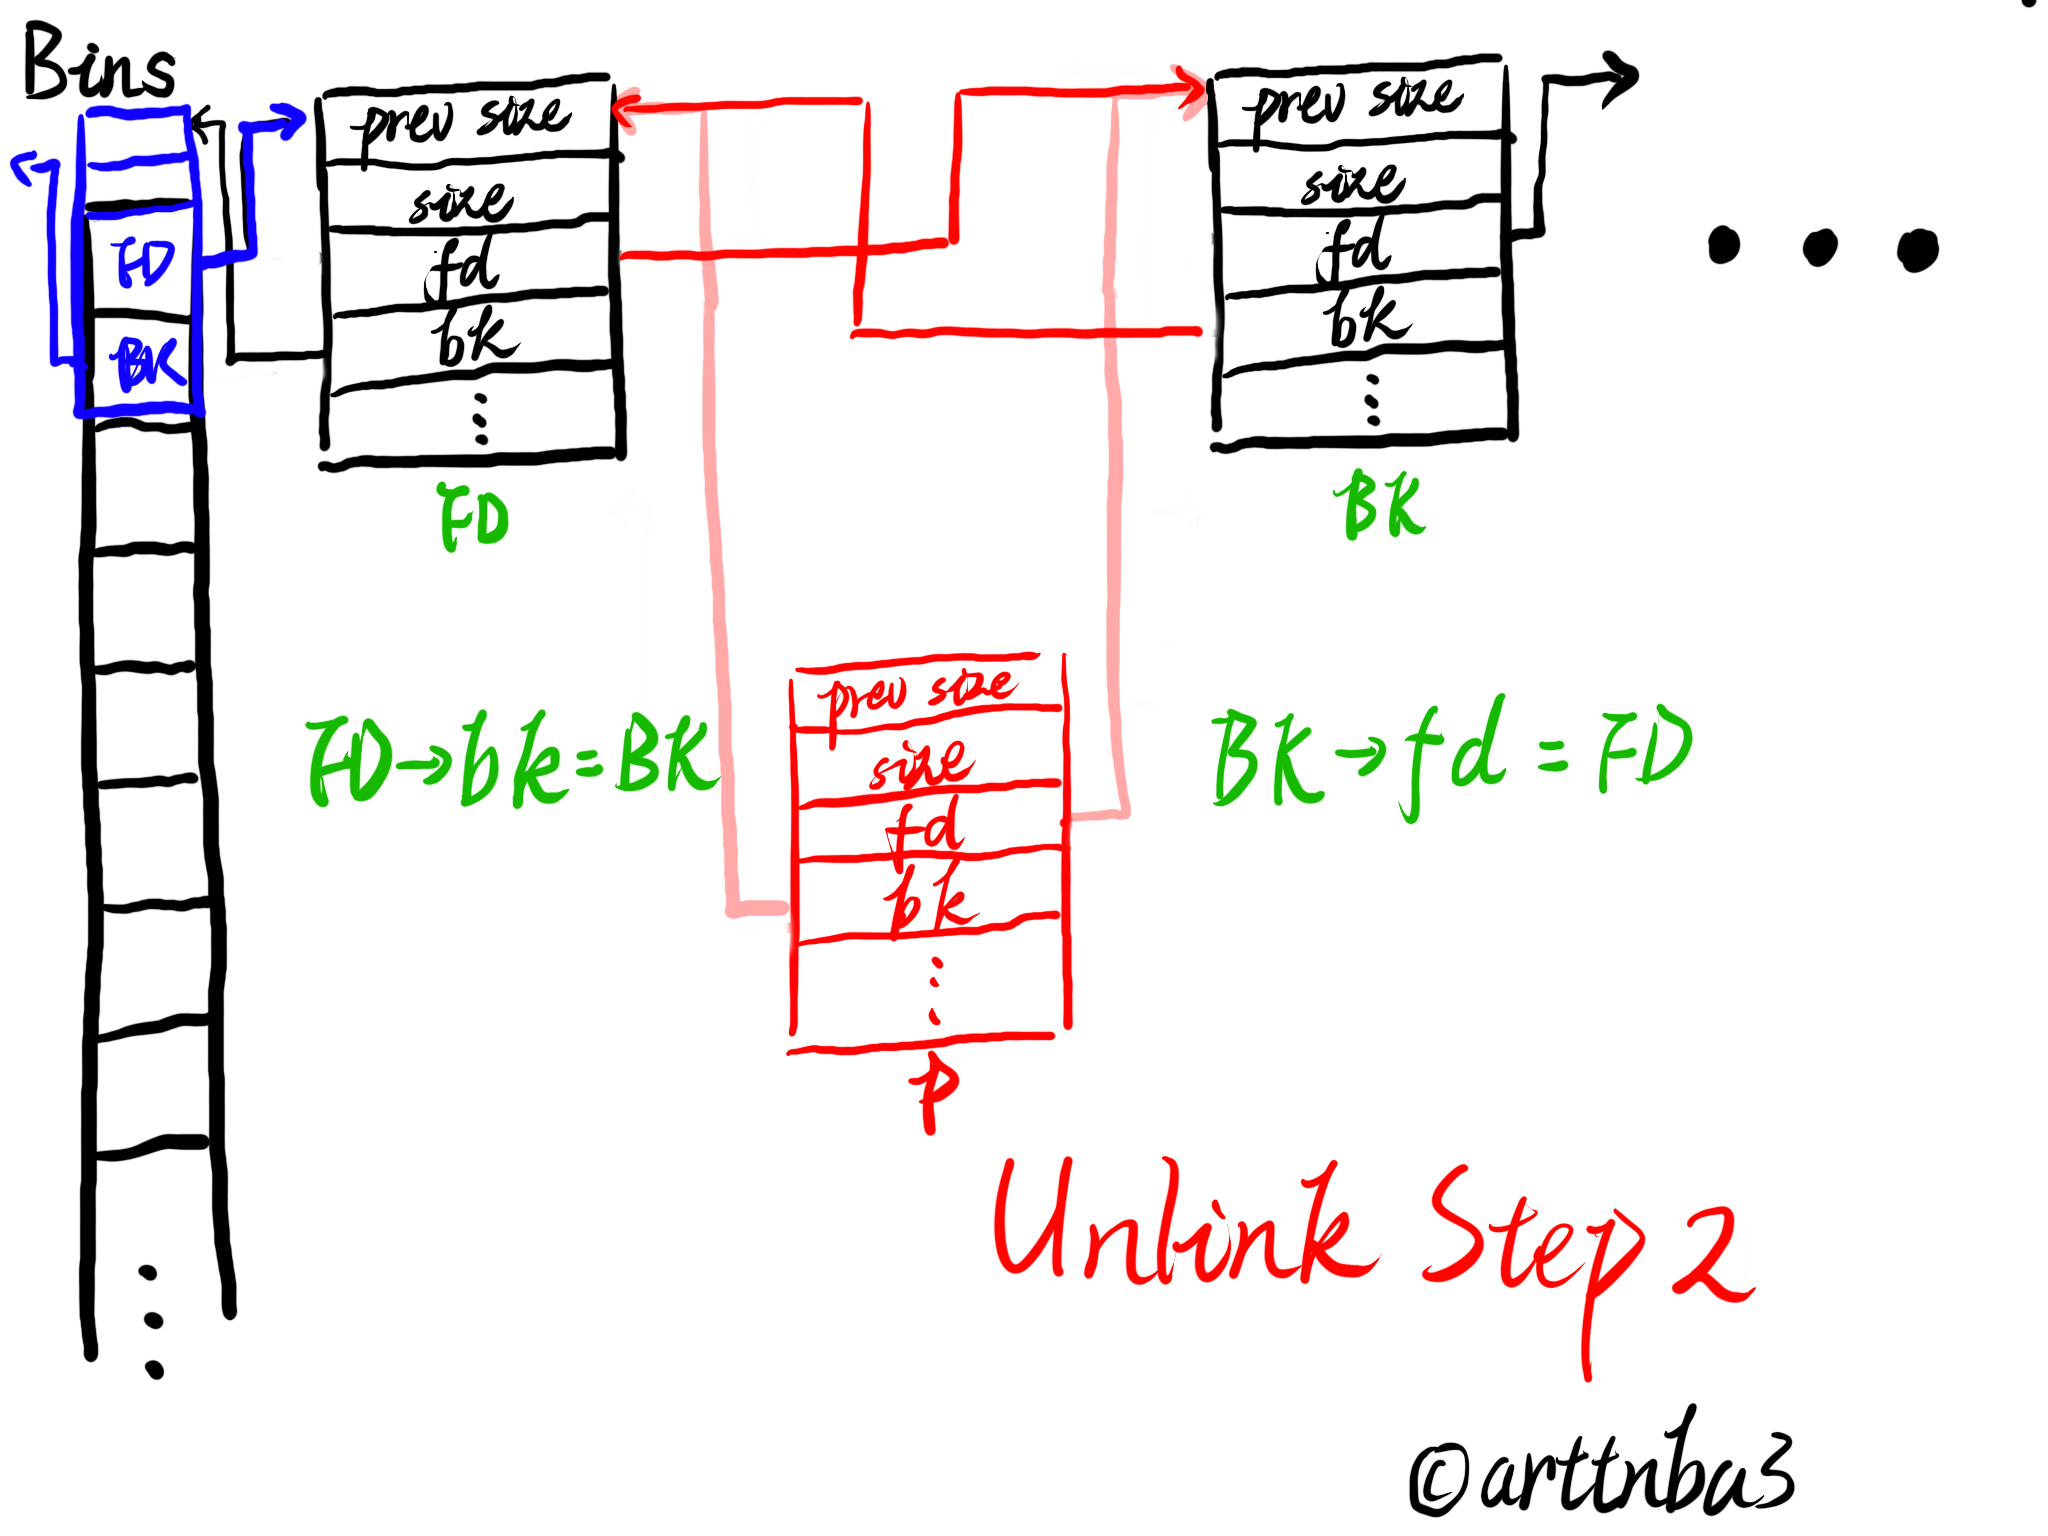 Bins
FD
BK
prev size
size
fd
bk
FD
prev size
size
fd
bk
BK
FD→bk=BK
prev size
size
fd
bk
P
BK→fd=FD
Unlink Step 2
©arttnba3